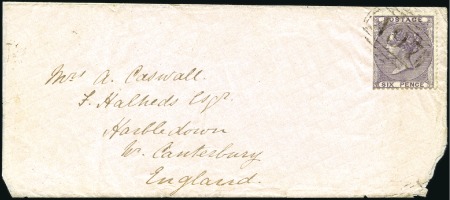 POSTAGE
SIX PENCE
Mrs A. Caswall.
F. Halheds Esqr.
Harbledown
Nr. Canterbury
England.